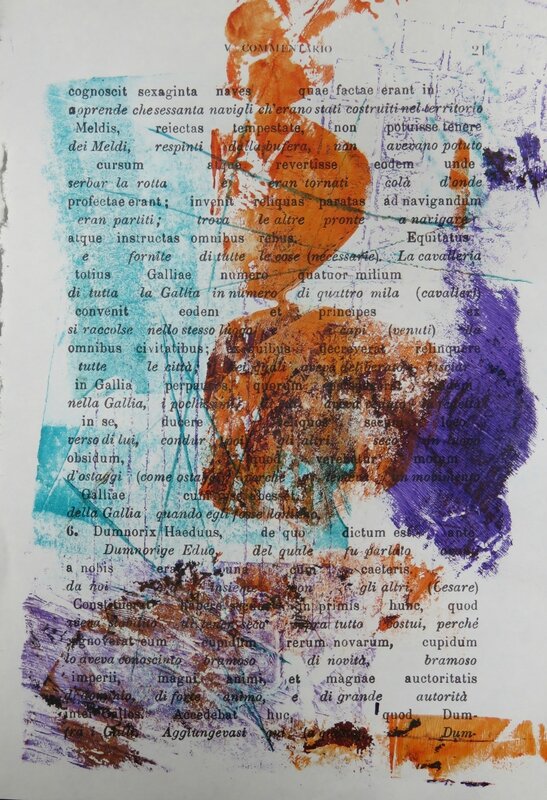 V COMMENTARIO 21
cognoscit sexaginta naves quae factae erant in
apprende che sessanta navigli ch'erano stati costruiti nel territorio
Meldis, reiectas tempestate, non potuisse tenere
dei Meldi, respinti dalla bufera, non avevano potuto
cursum atque revertisse eodem unde
serbar la rotta e eran tornati colà d'onde
profectae erant; invenit reliquas paratas ad navigandum
eran partiti; trova le altre pronte a navigare
atque instructas omnibus rebus. Equitatus
e fornite di tutte le cose (necessarie). La cavalleria
totius Galliae numero quatuor milium
di tutta la Gallia in numero di quattro mila (cavalieri)
convenit eodem et principes ex
si raccolse nello stesso luogo e i capi (venuti) da
omnibus civitatibus; ex quibus decreverat relinquere
tutte le città, dei quali aveva deliberato lasciar
in Gallia perpaucos, quorum
nella Gallia, i pochissimi
in se, ducere reliquos secum loco
verso di lui, condur poi gli altri seco in luogo
obsidum, quod verebatur motum
d'ostaggi (come ostaggi) perchè un movimento
Galliae cum ipse abesset.
della Gallia quando egli fosse lontano.
6. Dumnorix Haeduus, de quo dictum est ante
Dumnorige Eduo, del quale fu parlato
a nobis erat una cum caeteris.
da noi era insieme con gli altri. (Cesare)
Constituerat habere secum in primis hunc, quod
aveva stabilito di tener seco sopra tutto costui, perchè
cognoverat eum cupidum rerum novarum, cupidum
lo aveva conosciuto bramoso di novità, bramoso
imperii, magni animi, et magnae auctoritatis
di dominio, di forte animo, e di grande autorità
inter Gallos. Accedebat huc, quod Dum-
fra i Galli. Aggiungevasi qui che Dum-